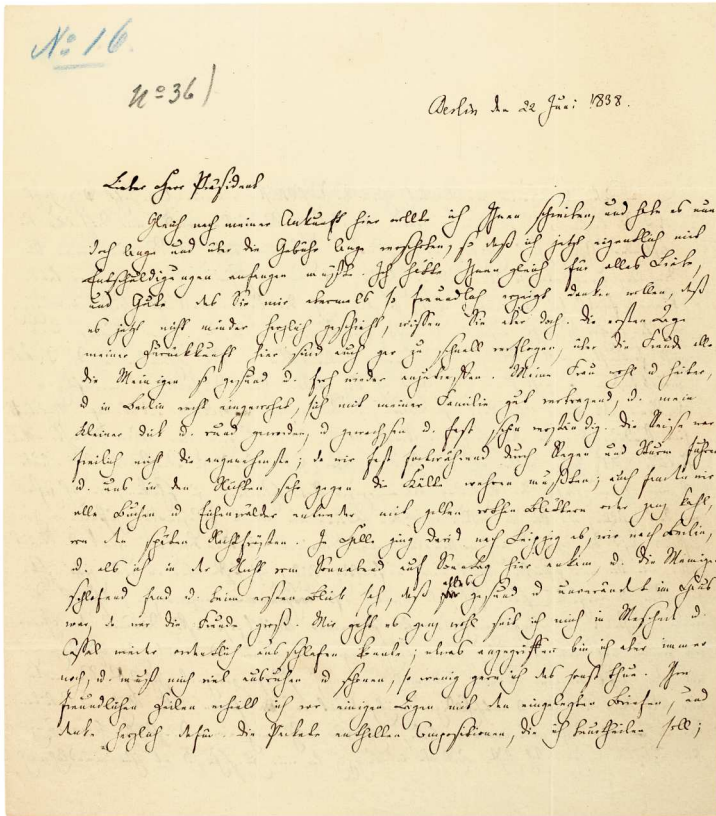 No 16.
No 36)
Berlin den 22 Juni 1838.
Lieber Herr Präsident
Gleich nach meiner Ankunft hier wollte ich Ihnen schreiben, und habe es nun
doch lange und über die Gebühr lange verschoben, so daß ich jetzt eigentlich mit
Entschuldigungen anfangen müßte. Ich hätte Ihnen gleich für alles Liebe,
und Gute das Sie mir abermals so freundlich erzeigt danken wollen, daß
es jetzt nicht minder herzlich geschieht, wissen Sie aber doch. Die ersten Tage
meiner Zurückkunft hier sind auch gar zu schnell verflogen, über die Freude alle
die Meinigen so gesund u. froh wieder anzutreffen. Meine Frau wohl u heiter,
u in Berlin recht eingewohnt, sich mit meiner Familie gut vertragend, u. mein
Kleiner dick u. rund geworden, u gewachsen u. fast schon verständig. Die Reise war
freilich nicht die angenehmste; da wir fast fortwährend durch Regen und Sturm fuhren
u. uns in den Nächten sehr gegen die Kälte wehren mußten; auch fanden wir
alle Buchen u Eichenwälder entweder mit gelben rothen Blättern oder ganz kahl,
von den späten Nachtfrösten. In Halle ging David nach Leipzig ab, wir nach Berlin,
u. als ich in der Nacht vom Sonnabend auf Sonntag hier ankam, u. die Meinigen
schlafend fand u. beim ersten Blick sah, daß alles gesund u unverändert im Haus
war, da war die Freude groß. Mir geht es ganz wohl seit ich mich in u.
Cassel wieder ordentlich ausschlafen konnte; etwas angegriffen bin ich aber immer
noch, u. muß mich viel ausruhen u schonen, so wenig gern ich das sonst thue. Ihre
freundlichen Zeilen erhielt ich vor einigen Tagen mit den eingelegten Briefen, und
danke herzlich dafür. Die Packete enthalten Compositionen, die ich beurtheilen soll;